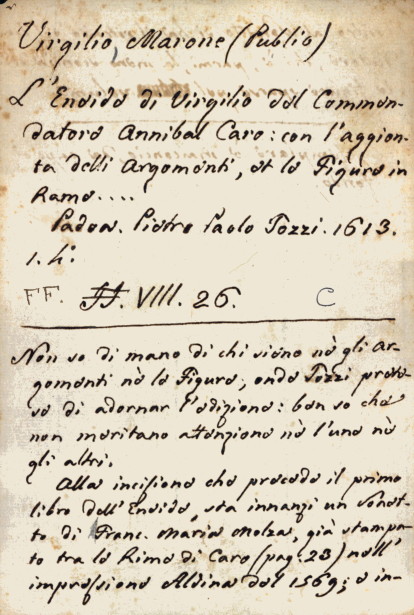 Virgilio Marone (Publio)
L'Eneide di Virgilio del Commen-
datore Annibal Caro: con l'aggion-
ta delli Argomenti, et le Figure in
Rame....
Padoa. Pietro Paolo Tozzi. 1613.
1. 4°
FF. FF. VIII. 26. C
Non so di mano di chi sieno nè gli Ar-
gomenti nè le Figure, onde Tozzi prete-
se di adornar l'edizione: ben so che
non meritano attenzione nè l'une nè
gli altri.
Alla incisione che precede il primo
libro dell'Eneide, sta innanzi un Sonet-
to di Franc. Maria Molza, già stampa-
to tra le Rime di Caro (pag. 23) nell'
impressione Aldina del 1569; e in-